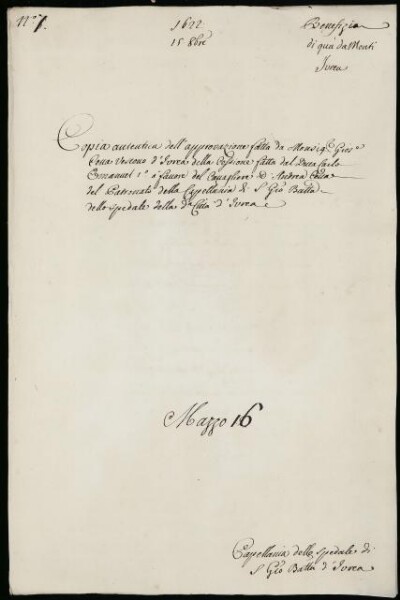 N.º 7.
1622
15 8bre
Benefizi
di quà da Monti
Ivrea
Copia autentica dell'approvazione fatta da Monsigr.
Vescovo d'Ivrea della Cessione fatta del Duca Carlo
Emanuel 1º a favore del Cavagliere D. Andrea
del Patronato della Cappellania di S. Gio Batta
dello spedale della da. Città d'Ivrea
Mazzo 16
Cappellania dello spedale di
S. Gio Batta d'Ivrea